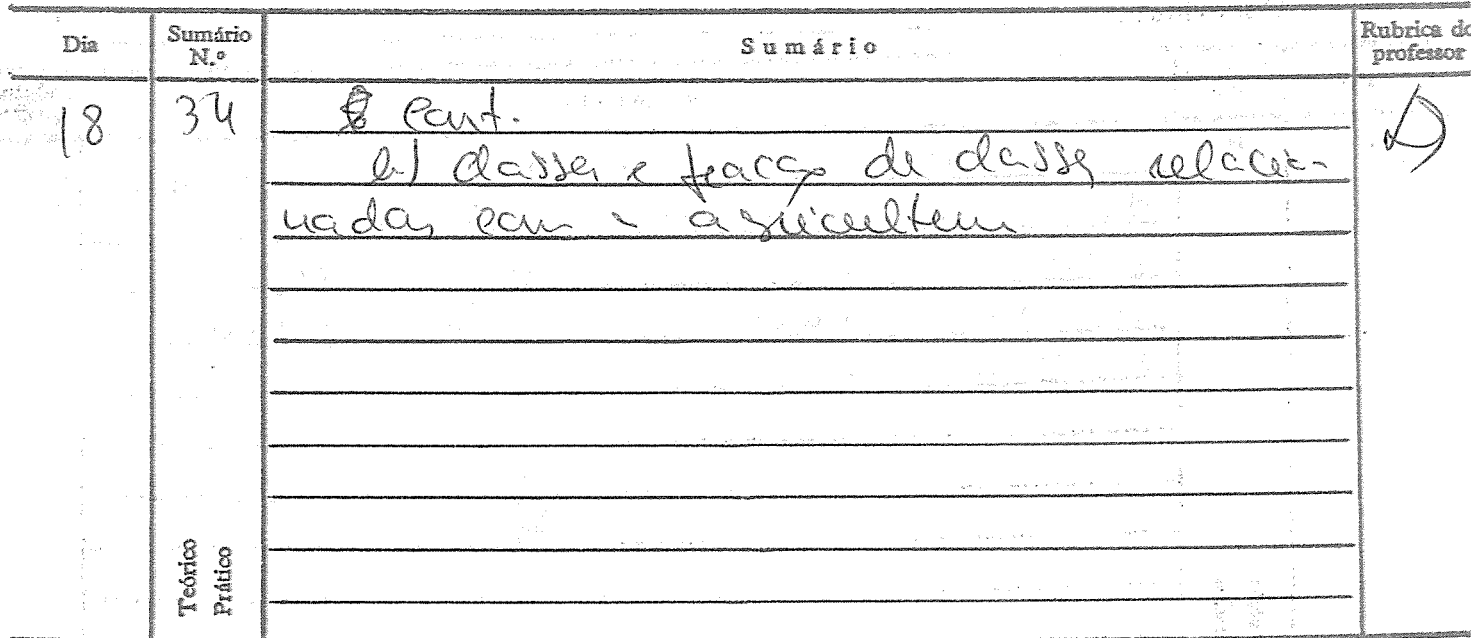 Dia Sumário N.º Sumário Rubrica do professor
18 34 Cont.
b) classes e fracções de classes relacio-
nadas com a agricultura
Teórico
Prático